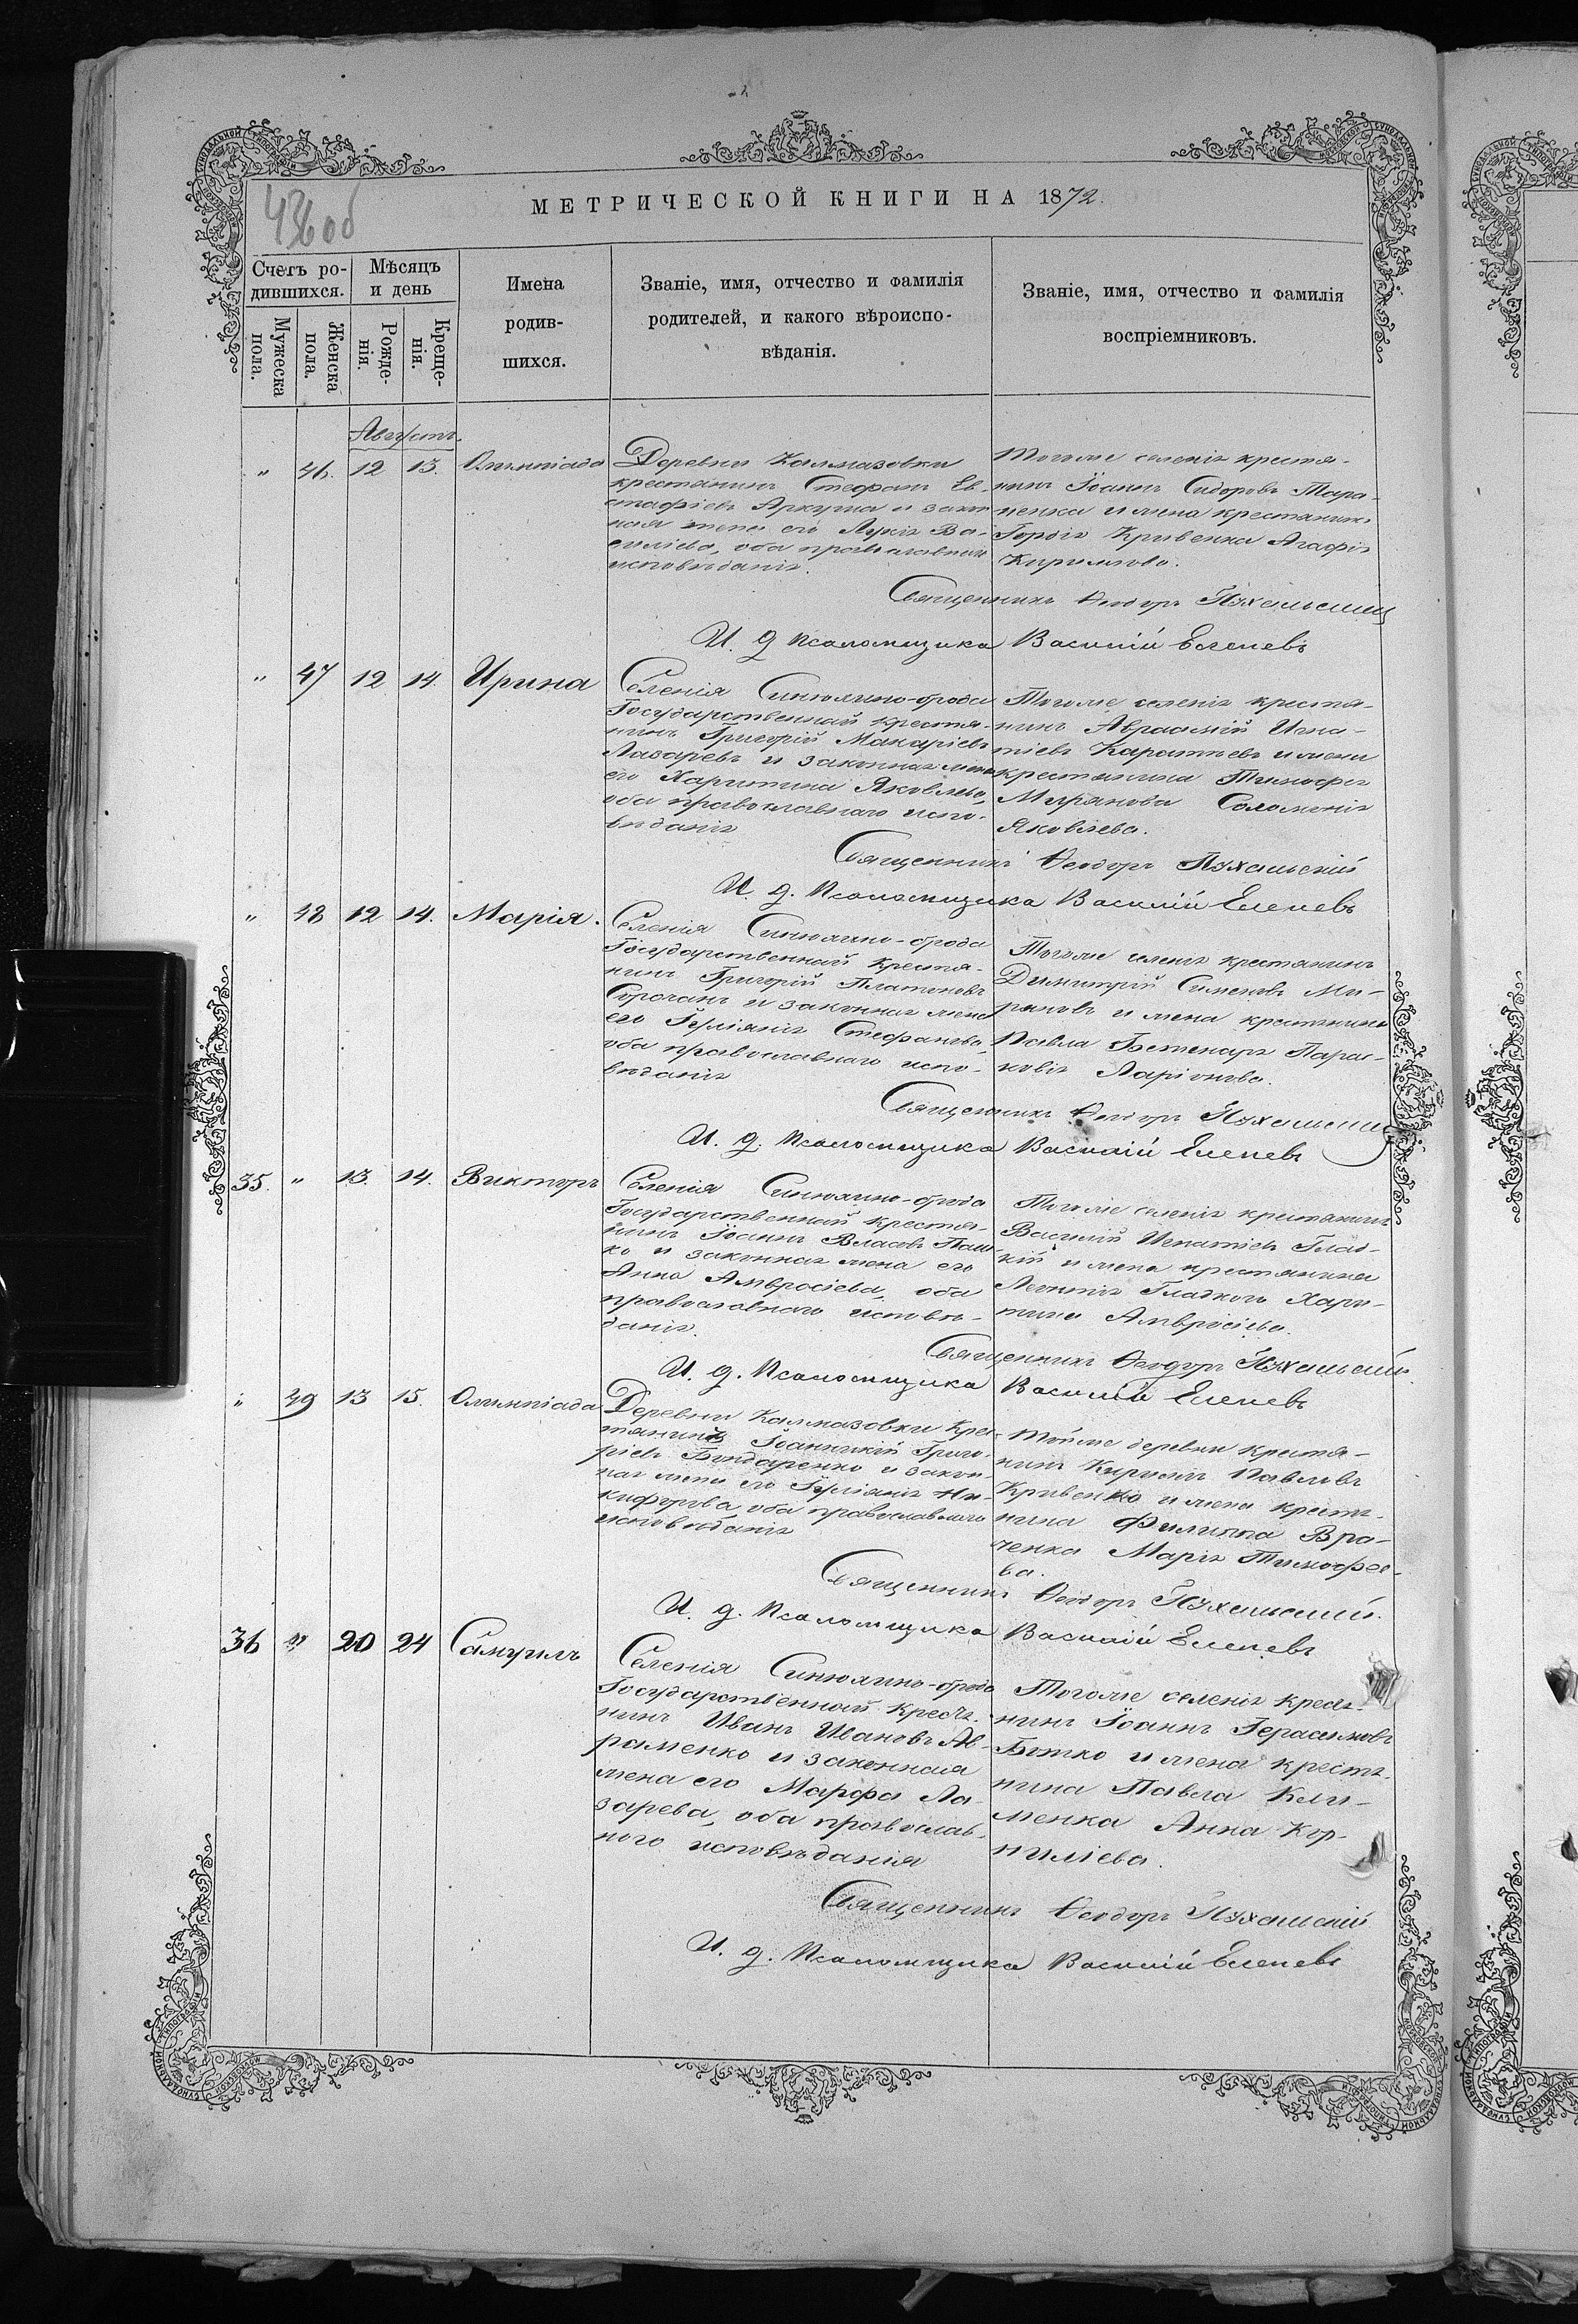 МЕТРИЧЕСКОЙ КНИГИ НА 1872.
436 об
Счетъ ро-
дившихся.
Мѣсяцъ
и день
Имена
родив-
шихся.
Званіе, имя, отчество и фамилія
родителей, и какого вѣроиспо-
вѣданія.
Званіе, имя, отчество и фамилія
воспріемниковъ.
Мужеска
пола.
Женска
пола.
Рожде-
нія.
Креще-
нія.
Августъ.
" 46. 12 13. Олимпіада
Деревни Калмазовки
крестянинъ Стефанъ Ев-
стафіевъ Аркуша и закон
ная жена его Лукія Ва-
силіева, оба православнаго
исповѣданія.
Тогоже селенія крестя-
нинъ Іоаннъ Сидоровъ Тара-
ненка и жена крестянина
Гордія Кривенка Агафія
Кирилова.
Священникъ Ѳеодоръ Пухальскій
И. д. Псаломщика Василій Еленевъ
" 47 12 14. Ирина
Селенія Синюхино-брода
Государственный крестя-
нинъ Григорій Макаріевъ
Лазаревъ и законная жена
его Харитина Яковлева,
оба православнаго испо-
вѣданія
Тогоже селенія крестя-
нинъ Авраамій Игна-
тіевъ и жена
крестянина Тимофея
Мирянова Соломонія
Яковлева.
Священникъ Ѳеодоръ Пухальскій
И. д. Псаломщика Василій Еленевъ
" 48 12 14. Марія.
Селенія Синюхино-брода
Государственный крестя-
нинъ Григорій Платоновъ
Сорочанъ и законная жена
его Іуліянія Стефанова,
оба православнаго испо-
вѣданія
Тогоже селенія крестянинъ
Димитрій Симеоновъ Ми-
ряновъ и жена крестянина
Павла Парас-
кевія Ларіонова.
Священникъ Ѳеодоръ Пухальскій
И. д. Псаломщика Василій Еленевъ
35. " 13. 14. Викторъ
Селенія Синюхино-брода
Государственный крестя-
нинъ Іоаннъ Власовъ Паш-
ко и законная жена его
Анна Амвросіева, оба
православнаго исповѣ-
данія.
Тогоже селенія крестянинъ
Василій Игнатіевъ Глад-
кій и жена крестянина
Леонтія Гладкого Хари-
тина Амвросіева.
Священникъ Ѳеодоръ Пухальскій.
И. д. Псаломщика Василій Еленевъ
" 49 13 15. Олимпіада
Деревни Калмазовки крес-
тянинъ Іоанникій Григо-
ріевъ Бондаренко и закон-
ная жена его Іуліянія Ни-
кифорова, оба православнаго
исповѣданія
Тойже деревни крестя-
нинъ Кирилъ Павловъ
Кривенко и жена крестя-
нина Филиппа Вра-
ченка Марія Тимофее-
ва.
Священникъ Ѳеодоръ Пухальскій.
И. д. Псаломщика Василій Еленевъ
36 " 20 24 Самуилъ
Селенія Синюхино-брода
Государственный крестя-
нинъ Иванъ Ивановъ Ав-
раменко и законная
жена его Марфа Ла-
зарева, оба православ-
ного исповѣданія
Тогоже селенія крестя-
нинъ Іоаннъ Герасимовъ
Божко и жена крестя-
нина Павла Кли-
менка Анна Кор-
нилiева.
Священникъ Ѳеодоръ Пухальскій
И. д. Псаломщика Василій Еленевъ